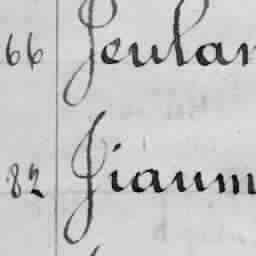 66 Jeulan
82 Jiaum